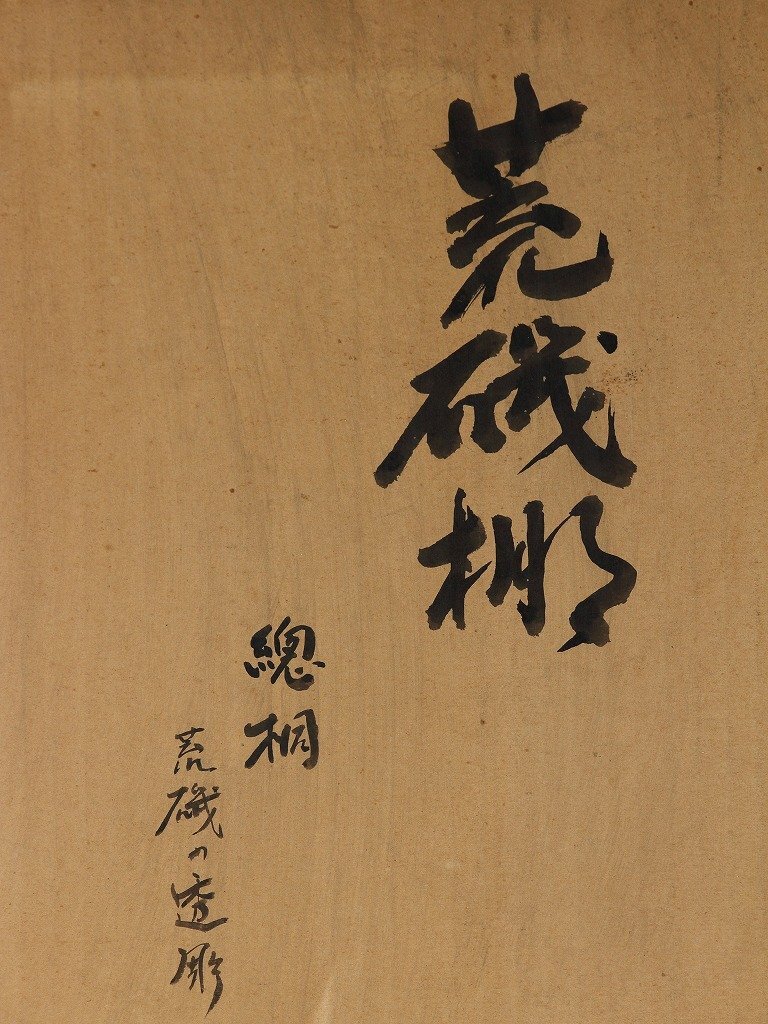 荒磯棚
總桐
荒磯の透彫